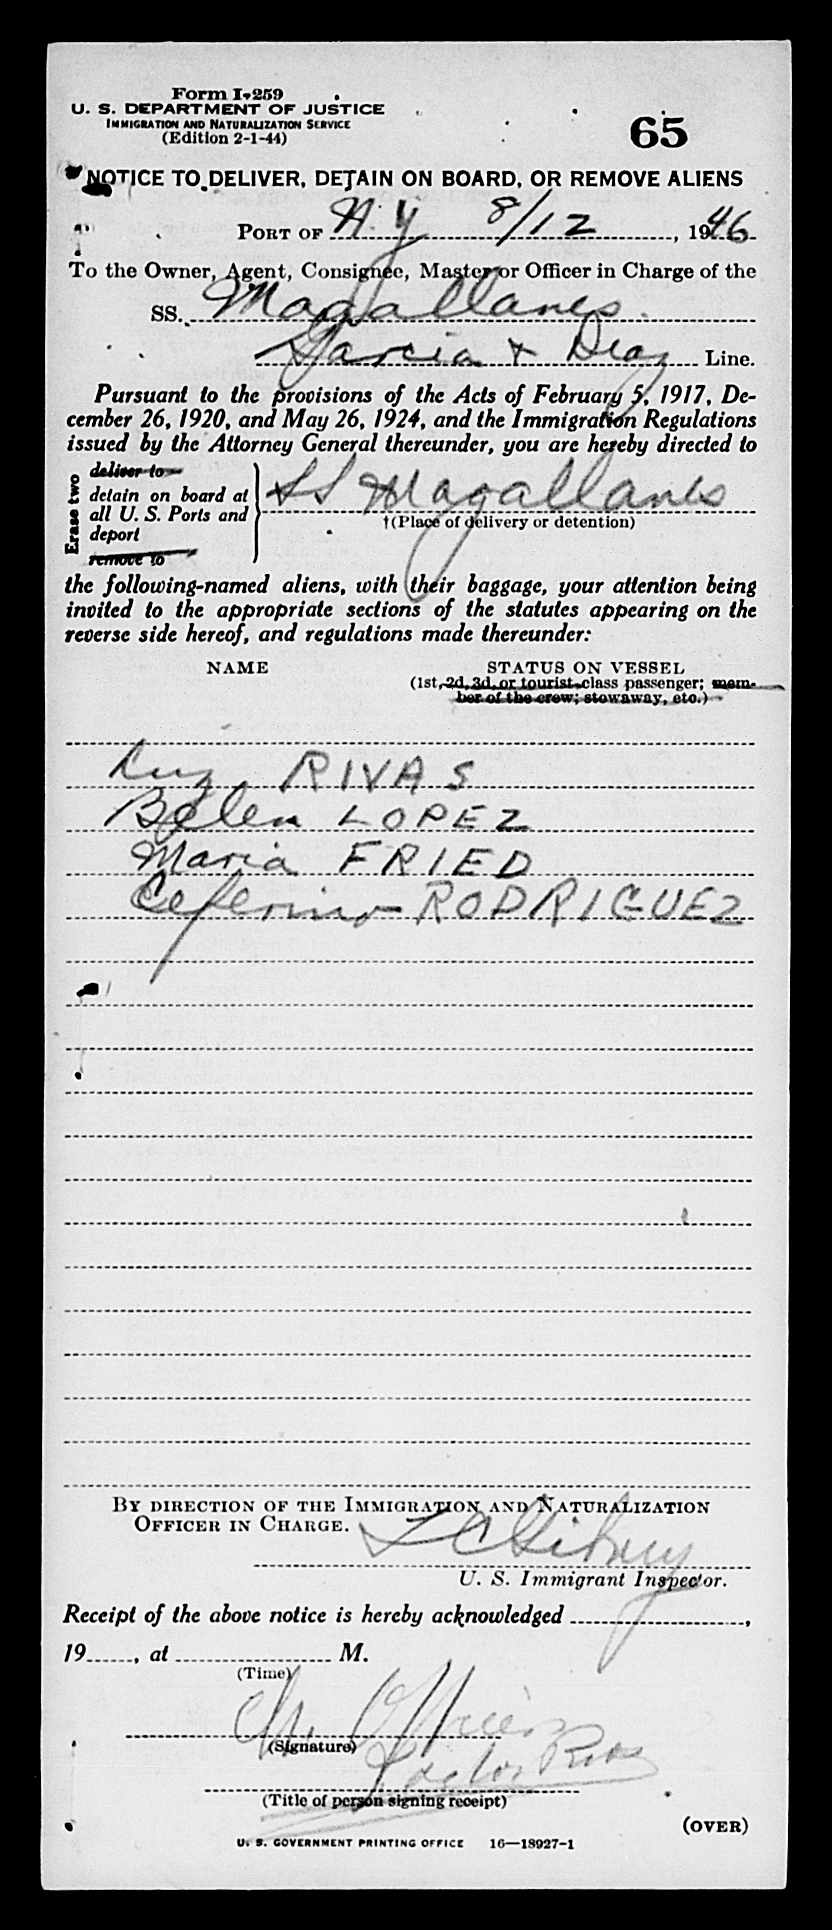 Form I-259
U. S. DEPARTMENT OF JUSTICE
IMMIGRATION AND NATURALIZATION SERVICE
(Edition 2-1-44)
65
NOTICE TO DELIVER, DETAIN ON BOARD, OR REMOVE ALIENS
PORT OF N.Y 8/12, 1946
To the Owner, Agent, Consignee, Master or Officer in Charge of the
SS. Magallanes.
Garcia + Diaz Line.
Pursuant to the provisions of the Acts of February 5, 1917, De-
cember 26, 1920, and May 26, 1924, and the Immigration Regulations
issued by the Attorney General thereunder, you are hereby directed to
Erase two
deliver to
detain on board at
all U. S. Ports and
deport
remove to
SS Magallanes
†(Place of delivery or detention)
the following-named aliens, with their baggage, your attention being
invited to the appropriate sections of the statutes appearing on the
reverse side hereof, and regulations made thereunder:
NAME STATUS ON VESSEL
(1st, 2d, 3d, or tourist-class passenger; mem-
ber of the crew; stowaway, etc.)
Luz RIVAS
Belen LOPEZ
Maria FRIED
Ceferino RODRIGUEZ
BY DIRECTION OF THE IMMIGRATION AND NATURALIZATION
OFFICER IN CHARGE.
U. S. Immigrant Inspector.
Receipt of the above notice is hereby acknowledged ,
19 , at M.
(Time)
Ch. Officer
(Signature)
(Title of person signing receipt)
(OVER)
U. S. GOVERNMENT PRINTING OFFICE 16—18927-1